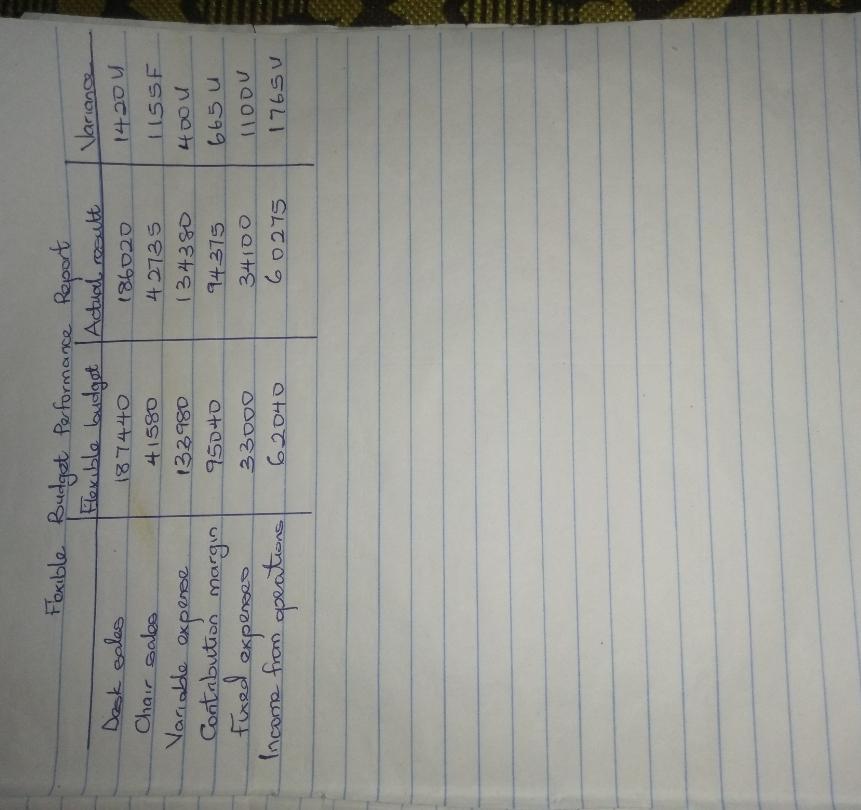 Flexible Budget Performance Report
Flexible budget Actual result Variance
Desk sales 187440 186020 1420 U
Chair sales 41580 42735 1155 F
Variable expense 133980 134380 400 U
Contribution margin 95040 94375 665 U
Fixed expenses 33000 34100 1100 U
Income from opeations 62040 60275 1765 U